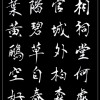 相祠堂何處
官城外柏森
階碧草自春
葉黃鸝空好